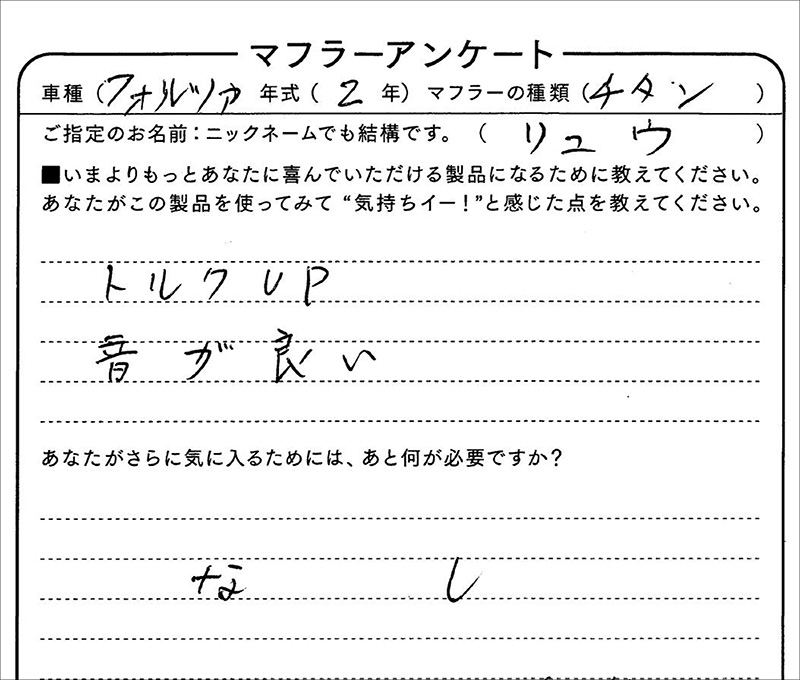 マフラーアンケート
車種(フォルツァ 年式( 2 年) マフラーの種類(チタン )
ご指定のお名前:ニックネームでも結構です。( リュウ )
■いまよりもっとあなたに喜んでいただける製品になるために教えてください。
あなたがこの製品を使ってみて“気持ちイー!”と感じた点を教えてください。
トルクUP
音が良い
あなたがさらに気に入るためには、あと何が必要ですか?
なし